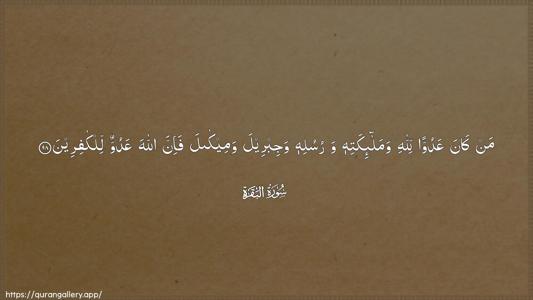 مَنۡ کَانَ عَدُوًّا لِّلّٰهِ وَمَلٰٓئِکَتِهٖ وَ رُسُلِهٖ وَجِبۡرِیۡلَ وَمِیۡکٰىلَ فَاِنَّ اللّٰهَ عَدُوٌّ لِّلۡکٰفِرِیۡنَ ﴿۹۸﴾
سُوْرَۃُ الْبَقَرَة
https://qurangallery.app/